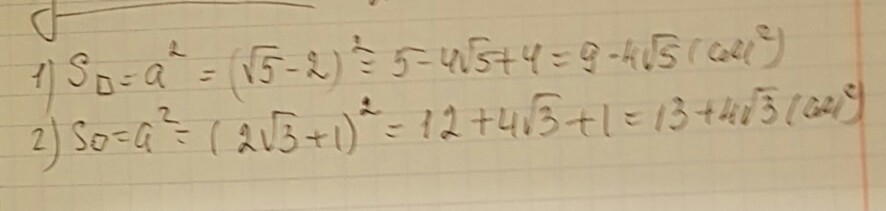 1) S□ = a² = (√5 - 2)² = 5 - 4√5 + 4 = 9 - 4√5 (см²)
2) S□ = a² = (2√3 + 1)² = 12 + 4√3 + 1 = 13 + 4√3 (см²)